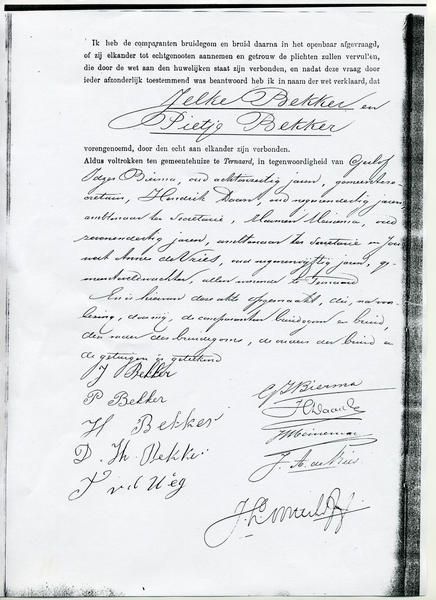 Ik heb de comparanten bruidegom en bruid daarna in het openbaar afgevraagd,
of zij elkander tot echtgenooten aannemen en getrouw de plichten zullen vervullen,
die door de wet aan den huwelijken staat zijn verbonden, en nadat deze vraag door
ieder afzonderlijk toestemmend was beantwoord heb ik in naam der wet verklaard, dat
Jelke Bekker en
Pietje Bekker
vorengenoemd, door den echt aan elkander zijn verbonden.
Aldus voltrokken ten gemeentehuize te Ternaard, in tegenwoordigheid van Gerlof
Bierma, oud achtenzestig jaren, gemeentese-
cretaris, Hendrik Daan, oud negenendertig jaren,
ambtenaar ter Secretarie, oud
zevenendertig jaren, ambtenaar ter Secretarie en
Annes de Vries, oud negenenvijftig jaren, ge-
meenteveldwachter, allen wonende te Ternaard
En is hiervan deze akte opgemaakt, die, na voor-
lezing, door mij, de comparanten bruidegom en bruid,
den vader des bruidegoms, de ouders der bruid en
de getuigen is geteekend
J Bekker
P Bekker
H Bekker
D. Th. Bekker
T v d Weg
G J Bierma
J. A. de Vries